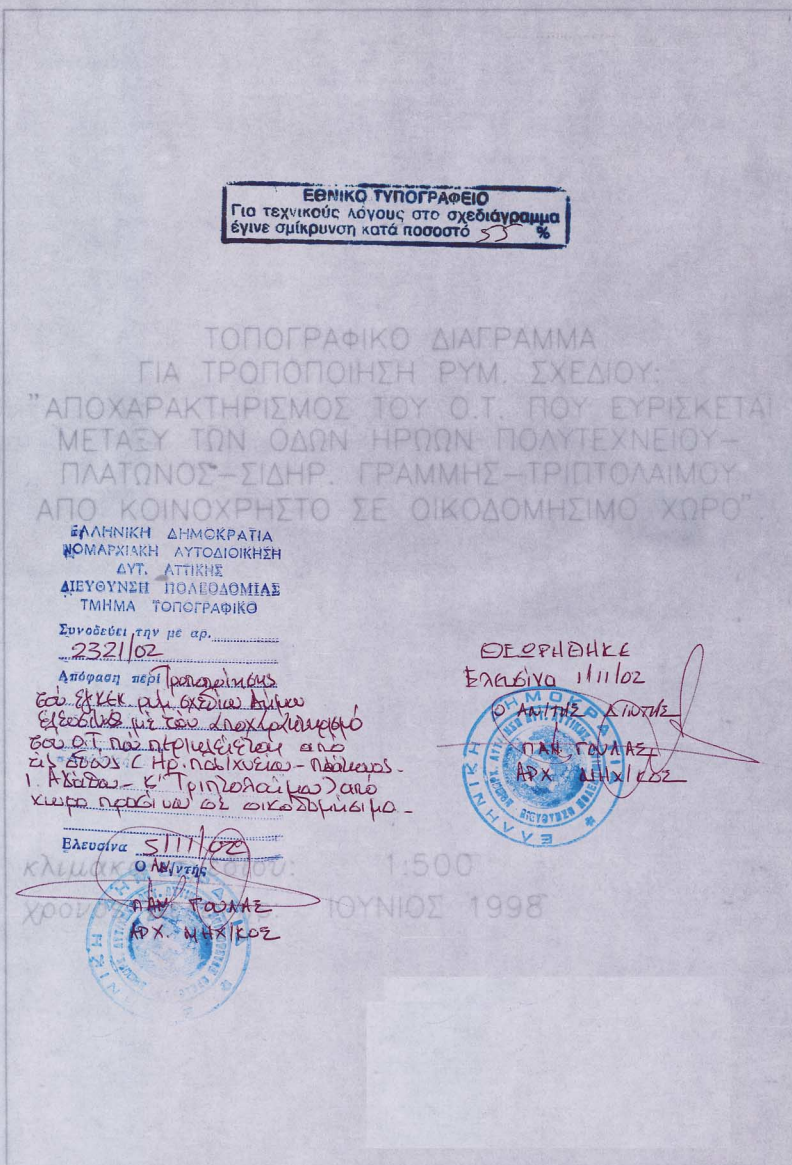 ΕΘΝΙΚΟ ΤΥΠΟΓΡΑΦΕΙΟ
Για τεχνικούς λόγους στο σχεδιάγραμμα
έγινε σμίκρυνση κατά ποσοστό 55 %
ΤΟΠΟΓΡΑΦΙΚΟ ΔΙΑΓΡΑΜΜΑ
ΓΙΑ ΤΡΟΠΟΠΟΙΗΣΗ ΡΥΜ. ΣΧΕΔΙΟΥ:
"ΑΠΟΧΑΡΑΚΤΗΡΙΣΜΟΣ ΤΟΥ Ο.Τ. ΠΟΥ ΕΥΡΙΣΚΕΤΑΙ
ΜΕΤΑΞΥ ΤΩΝ ΟΔΩΝ ΗΡΩΩΝ ΠΟΛΥΤΕΧΝΕΙΟΥ-
ΠΛΑΤΩΝΟΣ-ΣΙΔΗΡ. ΓΡΑΜΜΗΣ-ΤΡΙΠΤΟΛΑΙΜΟΥ
ΑΠΟ ΚΟΙΝΟΧΡΗΣΤΟ ΣΕ ΟΙΚΟΔΟΜΗΣΙΜΟ ΧΩΡΟ"
ΕΛΛΗΝΙΚΗ ΔΗΜΟΚΡΑΤΙΑ
ΝΟΜΑΡΧΙΑΚΗ ΑΥΤΟΔΙΟΙΚΗΣΗ
ΔΥΤ. ΑΤΤΙΚΗΣ
ΔΙΕΥΘΥΝΣΗ ΠΟΛΕΟΔΟΜΙΑΣ
ΤΜΗΜΑ ΤΟΠΟΓΡΑΦΙΚΟ
Συνοδεύει την με αρ.
2321/02
Απόφαση περί Τροποποίησης
του εγκεκ ρυμ. σχεδίου Δήμου
Ελευσίνας με τον αποχαρακτηρισμό
του Ο.Τ. που περικλείεται από
τις οδούς ( Ηρ. Πολ/χνείου - Πλάτωνος -
Τριπτολαίμου) από
χώρο πρασίνου σε οικοδομήσιμο -
Ελευσίνα 5/11/02
Ο Δ/ντής
ΠΑΝ ΓΟΥΛΑΣ
ΑΡΧ. ΜΗΧ/ΚΟΣ
ΘΕΩΡΗΘΗΚΕ
Ελευσίνα 1/11/02
Ο ΑΝ/ΤΗΣ Δ/ΝΤΗΣ
ΠΑΝ ΓΟΥΛΑΣ
ΑΡΧ ΜΗΧ/ΚΟΣ
ΕΛΛΗΝΙΚΗ ΔΗΜΟΚΡΑΤΙΑ
1:500
ΙΟΥΝΙΟΣ 1998